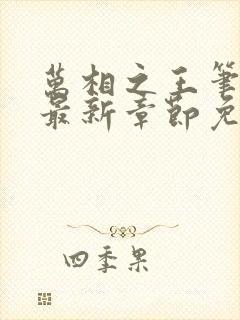 萬相之王筆
最新章節免
四季果